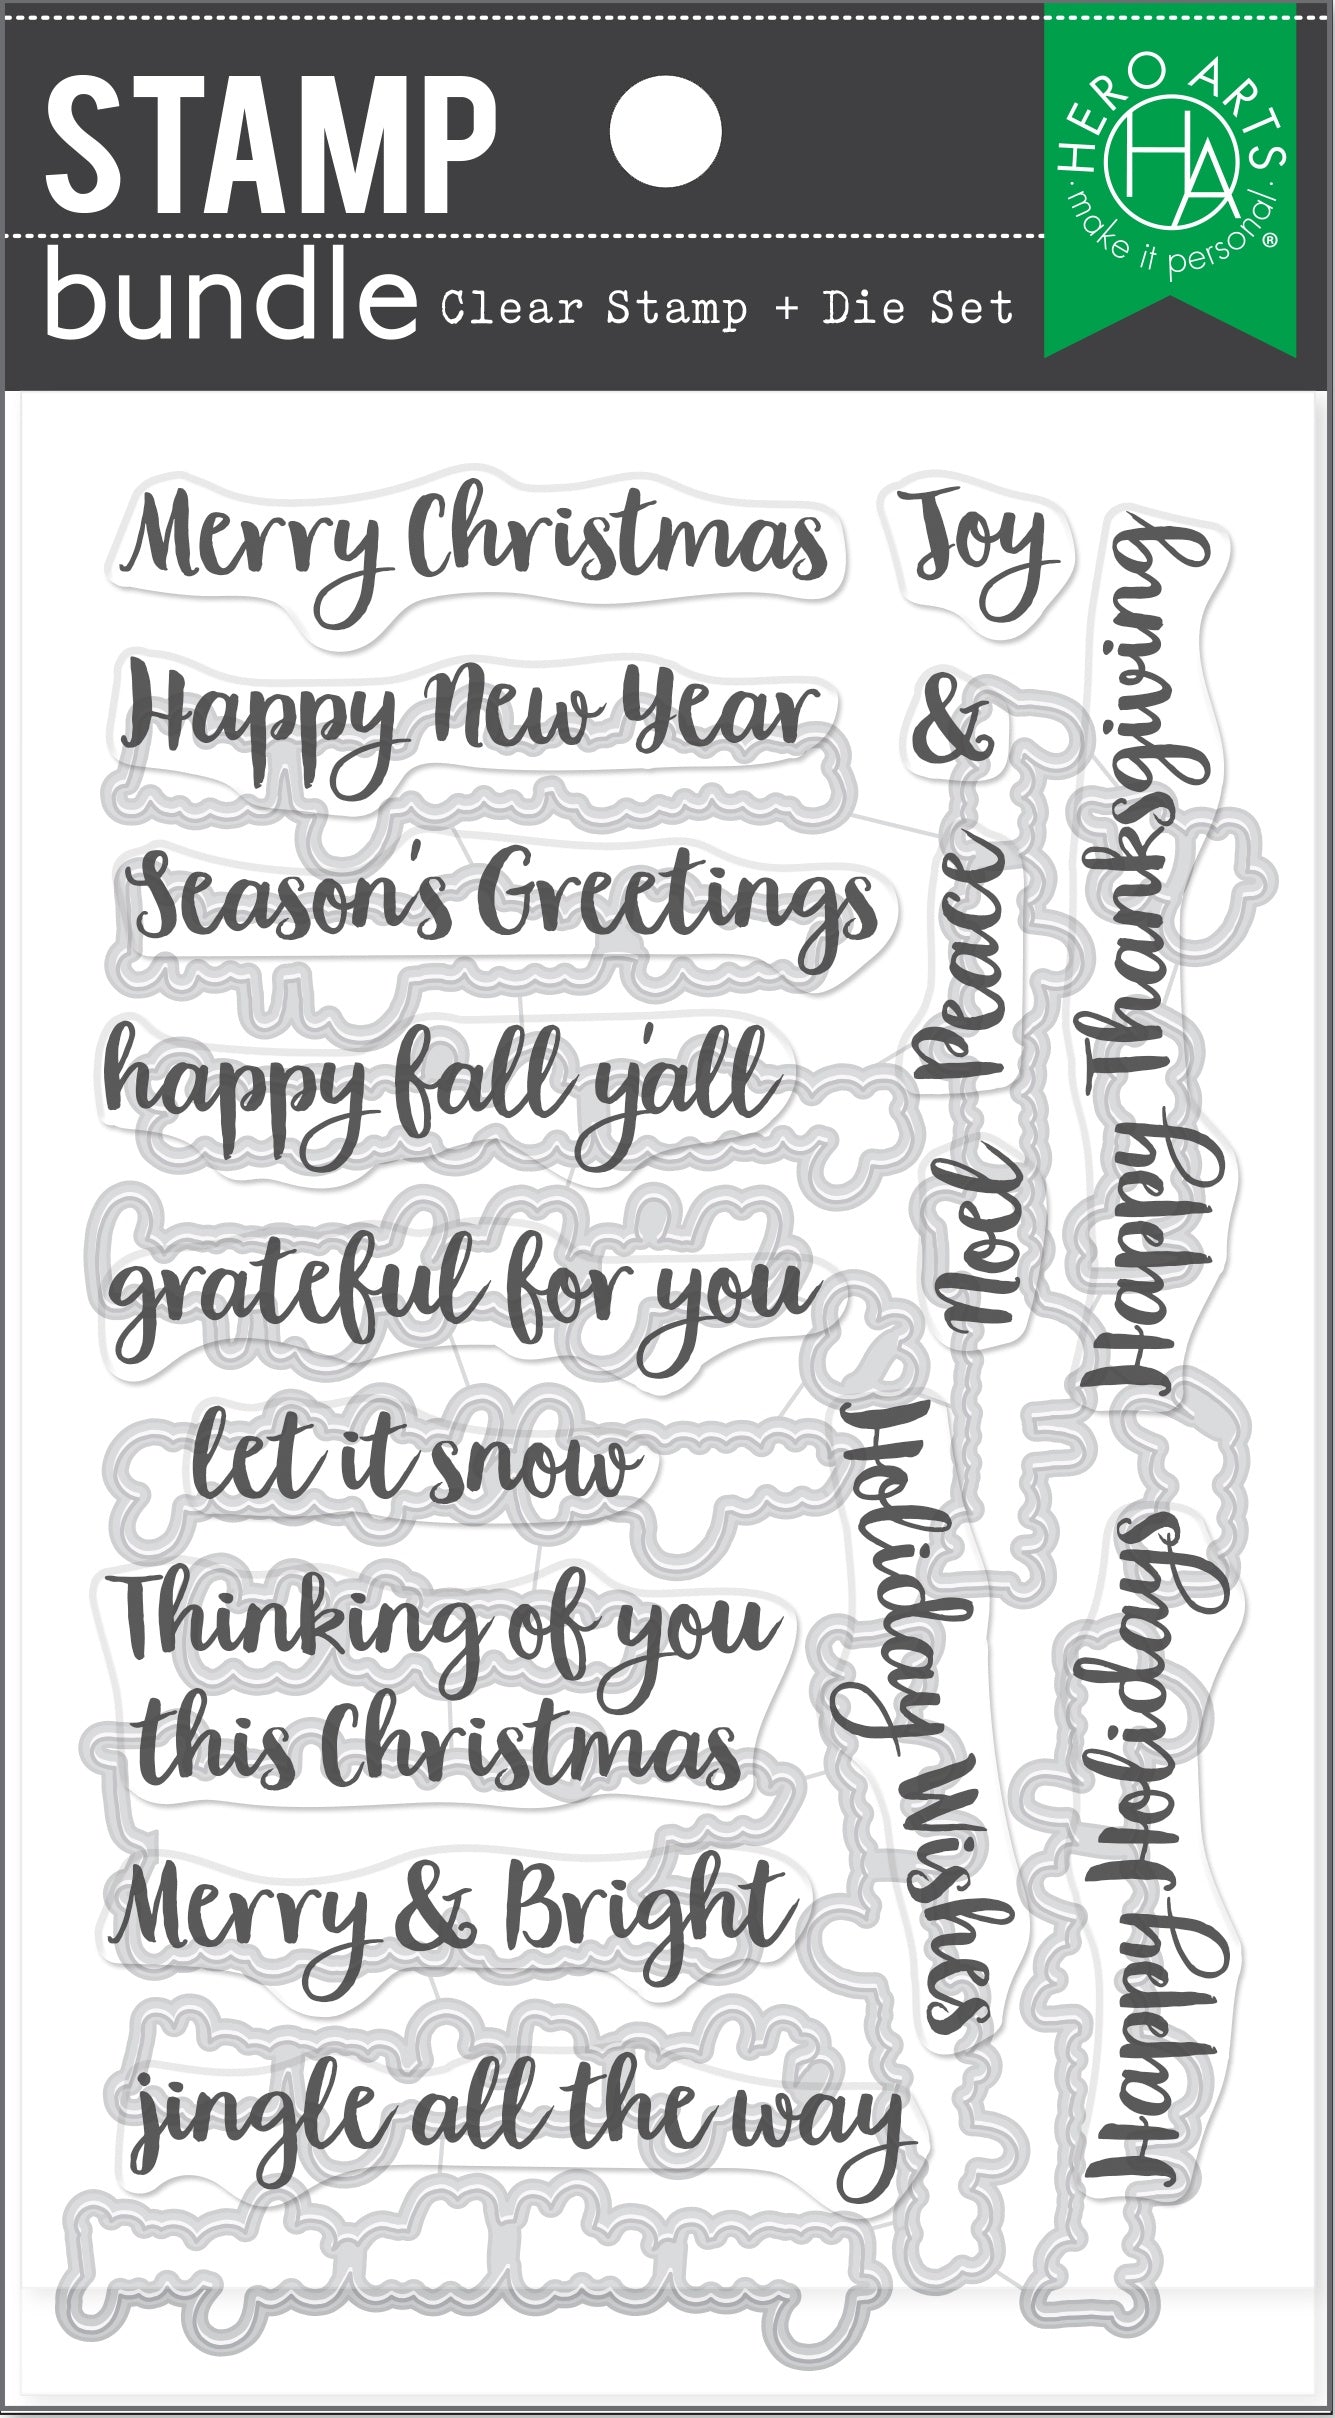 STAMP
bundle Clear Stamp + Die Set
HERO ARTS
HA
· make it personal · ®
Merry Christmas
Joy
Happy New Year
&
Season's Greetings
Peace
happy fall y'all
Noel
Happy Thanksgiving
grateful for you
let it snow
Holiday Wishes
Thinking of you
this Christmas
Happy Holidays
Merry & Bright
jingle all the way